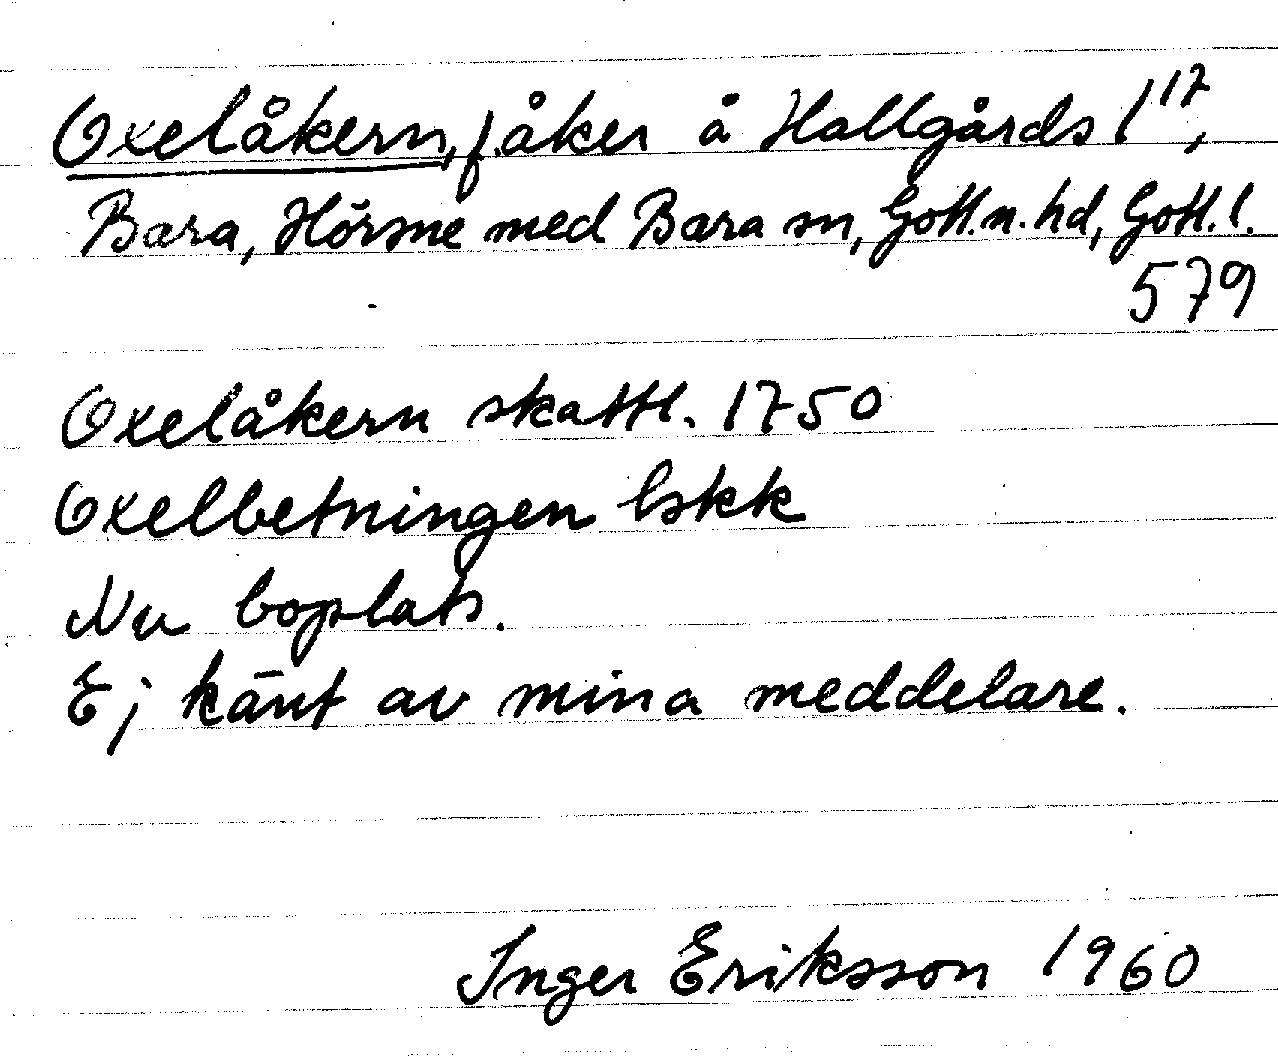 Oxelåkern, f. åker å Hallgårds 1¹⁷,
Bara, Hörsne med Bara sn, Gotl. n. hd, Gotl. l.
579
Oxelåkern skattl. 1750
Oxelbetningen lskk
Nu boplats.
Ej känt av mina meddelare.
Inger Eriksson 1960